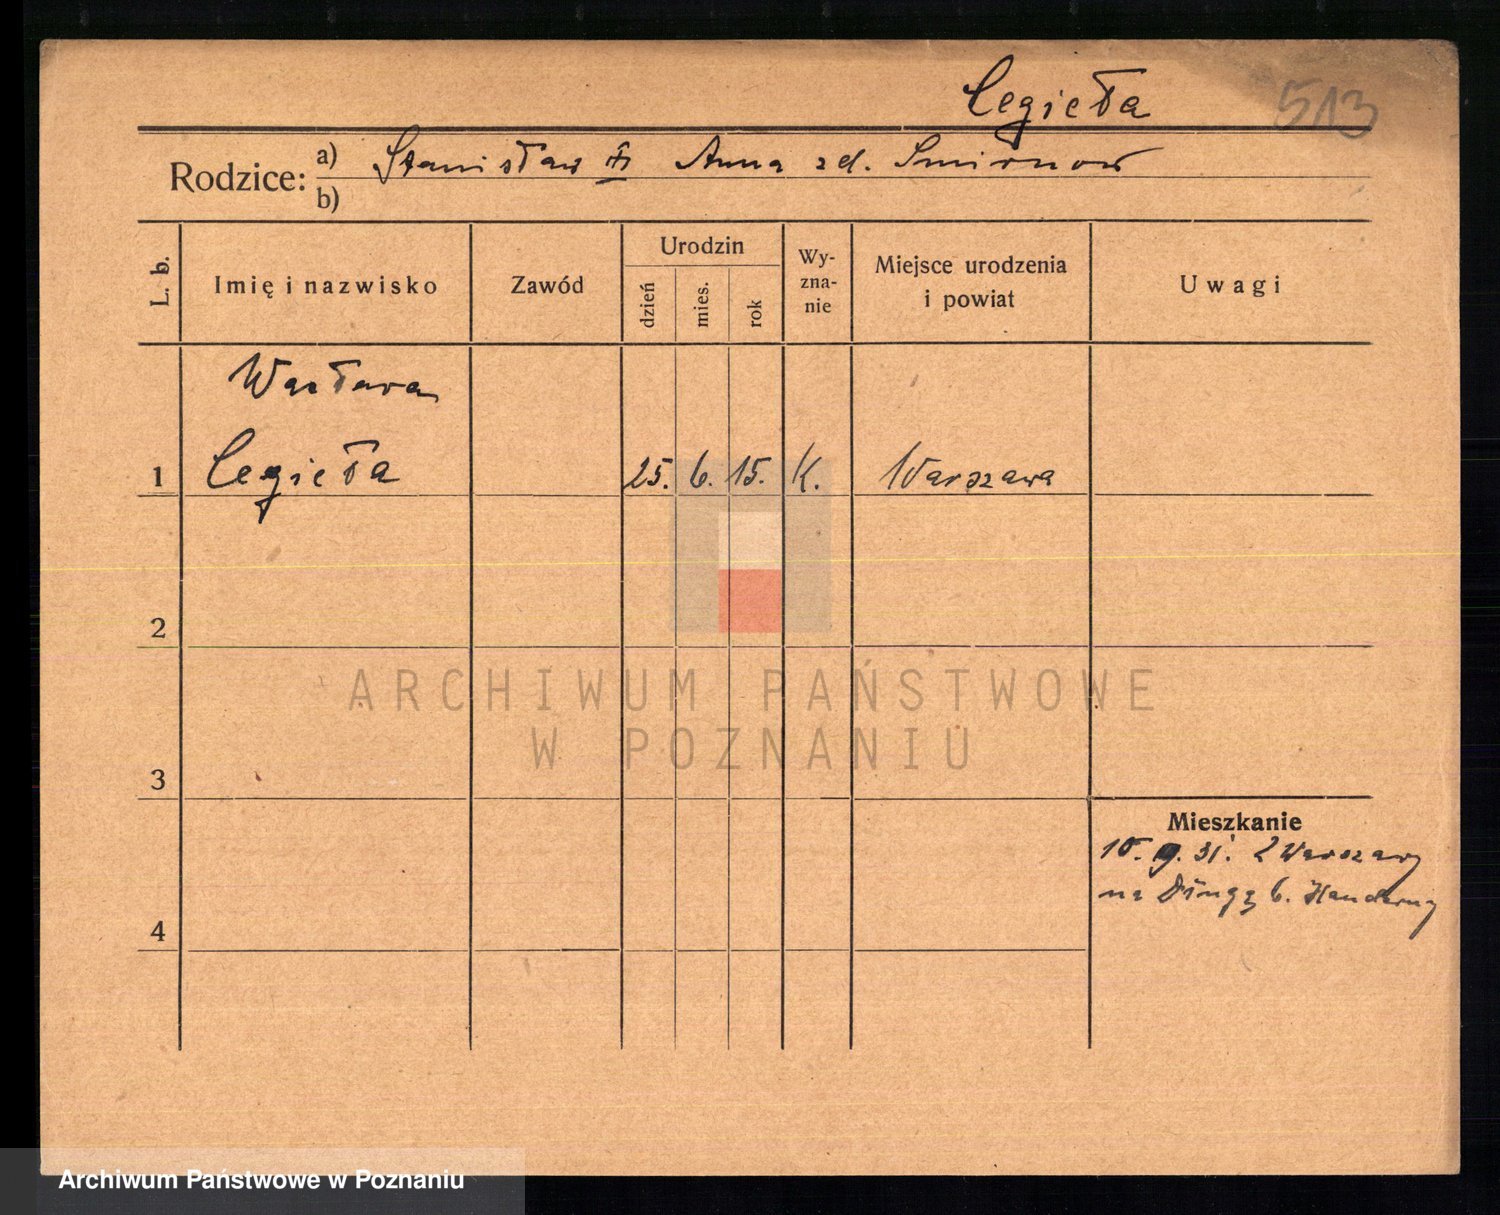 Cegieła
513
Rodzice: a) Stanisław i Anna zd. Smirnow
b)
L. b.
Imię i nazwisko
Zawód
Urodzin
dzień
mies.
rok
Wy-
zna-
nie
Miejsce urodzenia
i powiat
Uwagi
Wacława
1 Cegieła 25. 6. 15. K. Warszawa
2
ARCHIWUM PAŃSTWOWE
W POZNANIU
3
Mieszkanie
10. 9. 31. z Warszawy
na Długą 6.
4
Archiwum Państwowe w Poznaniu